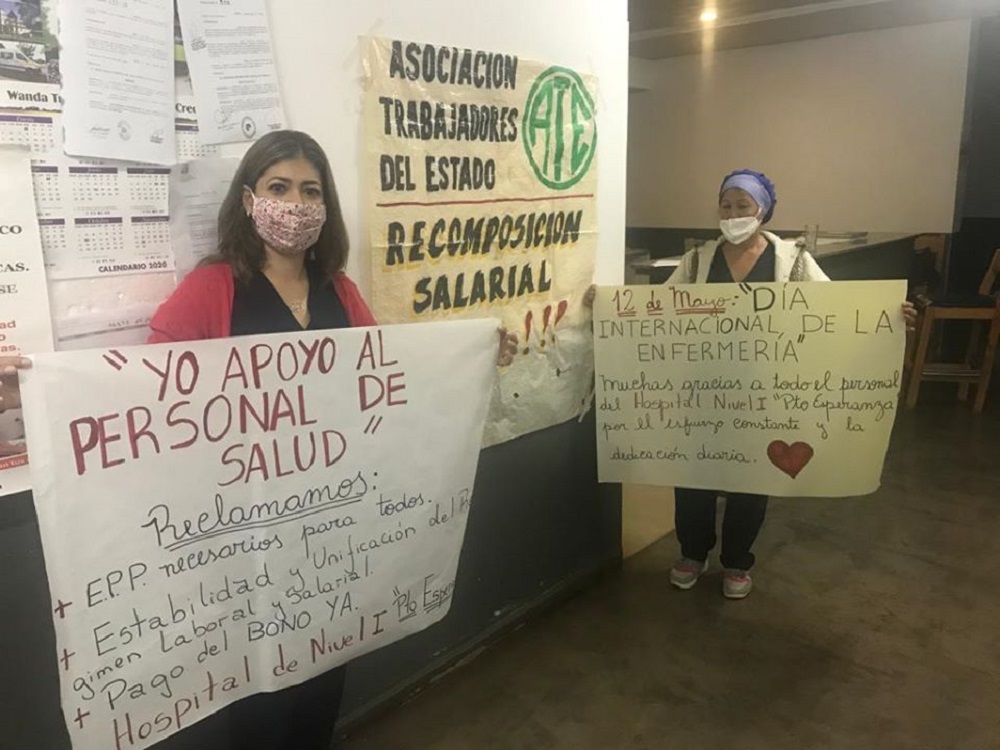 Wanda
CALENDARIO 2020
ASOCIACION
TRABAJADORES
DEL ESTADO
ATE
RECOMPOSICION
SALARIAL
!!!
"YO APOYO AL
PERSONAL DE
SALUD"
Reclamamos:
+ E.P.P. necesarios para todos.
+ Estabilidad y Unificación del
gimen Laboral y Salarial.
+ Pago del BONO YA.
Hospital de Nivel I "Pto Esper
12 de Mayo: "DÍA
INTERNACIONAL DE LA
ENFERMERÍA"
Muchas gracias a todo el personal
del Hospital Nivel I "Pto Esperanza
por el esfuerzo constante y la
dedicación diaria.